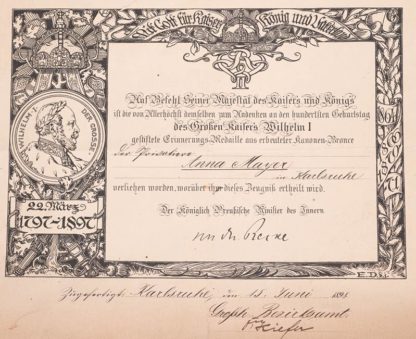 Mit Gott für Kaiser König und Vaterland
Auf Befehl Seiner Majestät des Kaisers und Königs
ist die von Allerhöchst demselben zum Andenken an den hundertsten Geburtstag
des Großen Kaisers Wilhelm I
gestiftete Erinnerungs-Medaille aus erbeuteter Kanonen-Bronce
Anna Mayer
in Karlsruhe
verliehen worden, worüber ihr dieses Zeugniß ertheilt wird.
Der Königlich Preußische Minister des Innern
von der Recke
WILHELM I. DER GROSSE
22. März
1797-1897
E.D.
Zugefertigt: Karlsruhe, den 15. Juni 189
Großh. Bezirksamt
Kiefer